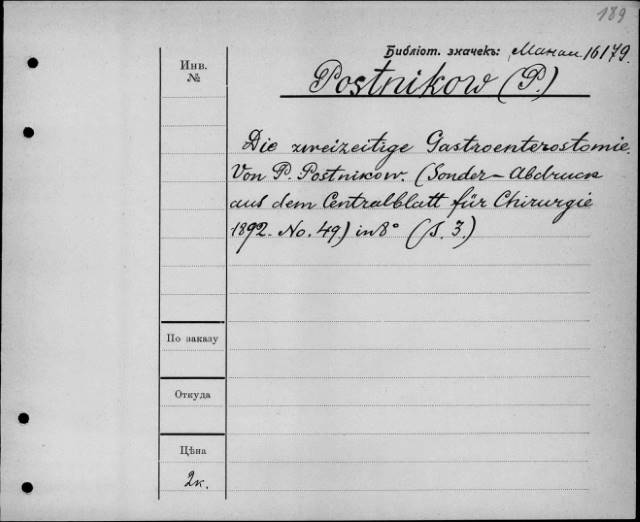 189
Библіот. значекъ: 16179.
Инв.
№
Postnikow (P.)
Die zweizeitige Gastroenterostomie.
Von P. Postnikow. (Sonder-Abdruck
aus dem Centralblatt für Chirurgie
1892. No. 49) in 8° (S. 3.)
По заказу
Откуда
Цѣна
2к.